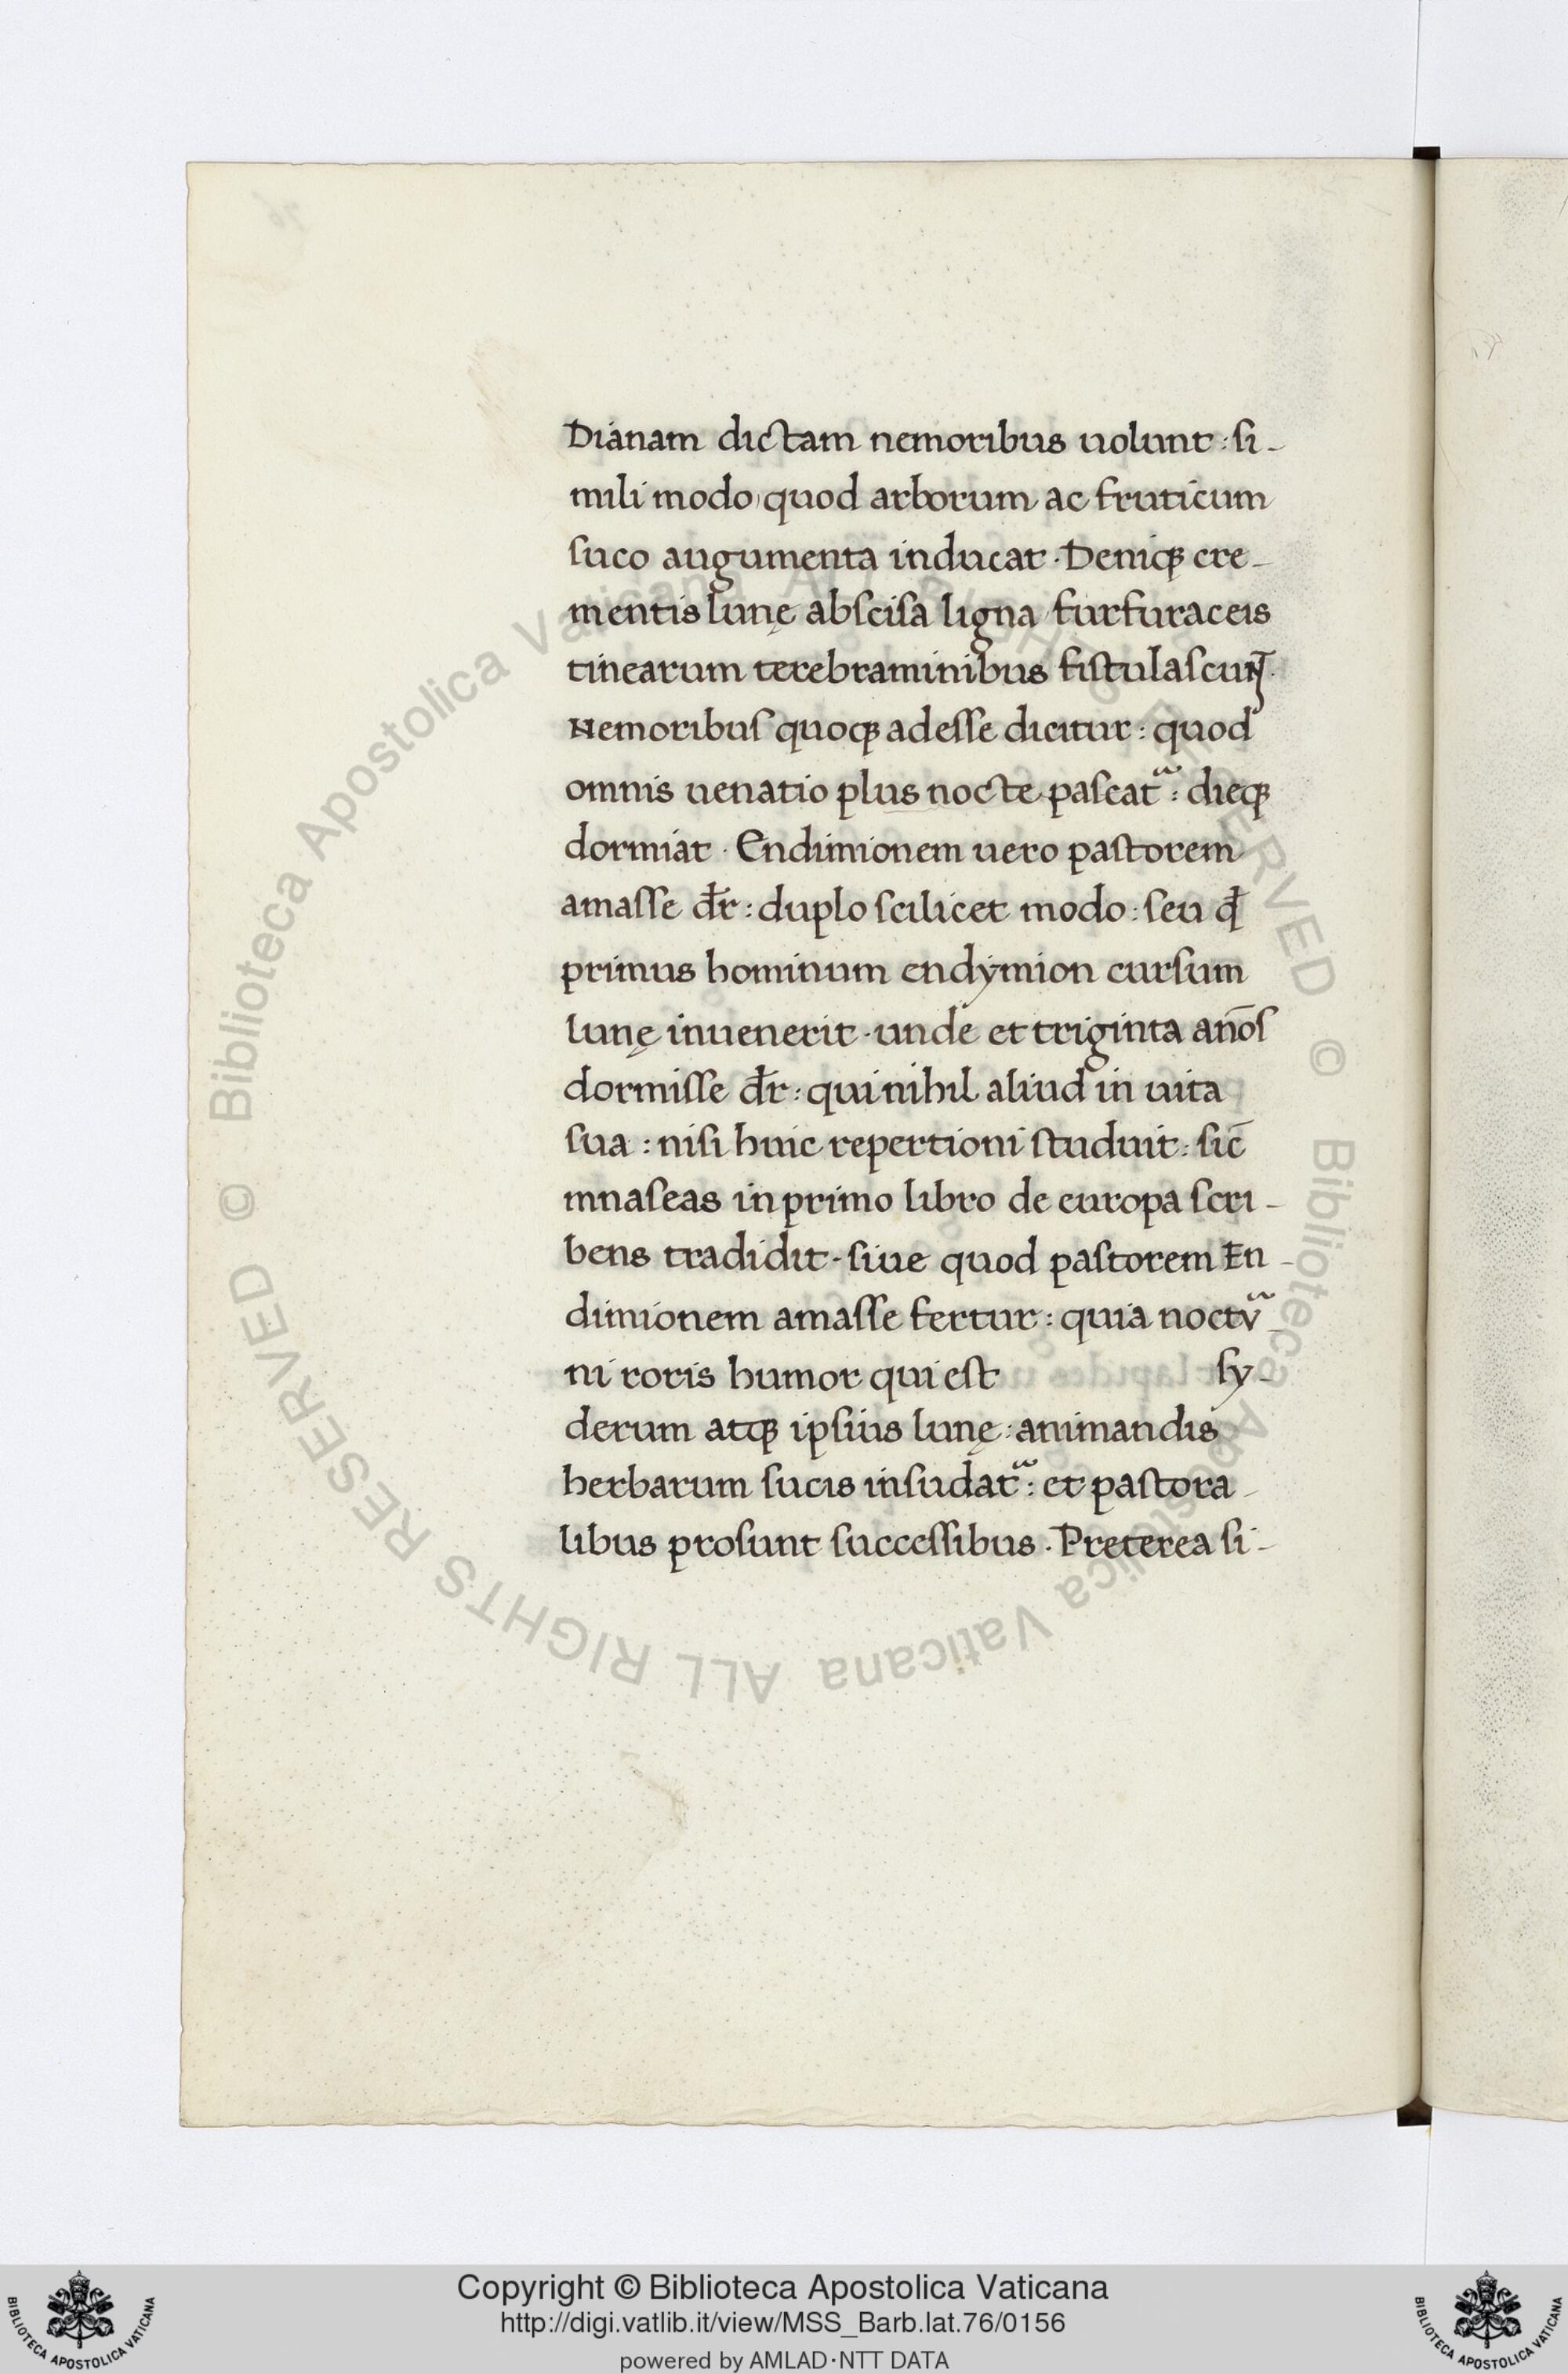 Dianam dictam nemoribus uolunt : si-
mili modo quod arborum ac fruticum
suco augumenta inducat · Deniqꝫ cre-
mentis lunę abscisa ligna furfuraceis
tinearum terebraminibus fistulascunt̄ ·
Nemoribus quoqꝫ adesse dicitur : quod
omnis uenatio plus nocte pascat᷑ : dieqꝫ
dormiat · Endimionem uero pastorem
amasse dr̄ : duplo scilicet modo : seu qđ
primus hominum endymion cursum
lunę inuenerit · unde et triginta an̄os
dormisse dr̄ : qui nihil aliud in uita
sua : nisi huic repertioni studuit : sic̄
mnaseas in primo libro de europa scri-
bens tradidit · siue quod pastorem En-
dimionem amasse fertur : quia noctv᷑-
ni roris humor qui est sy-
derum atqꝫ ipsius lunę : animandis
herbarum sucis insudat᷑ : et pastora-
libus prosunt successibus · Preterea si-
© Biblioteca Apostolica Vaticana ALL RIGHTS RESERVED © Biblioteca Apostolica Vaticana ALL RIGHTS RESERVED
Copyright © Biblioteca Apostolica Vaticana
http://digi.vatlib.it/view/MSS_Barb.lat.76/0156
powered by AMLAD·NTT DATA
BIBLIOTECA APOSTOLICA VATICANA
BIBLIOTECA APOSTOLICA VATICANA